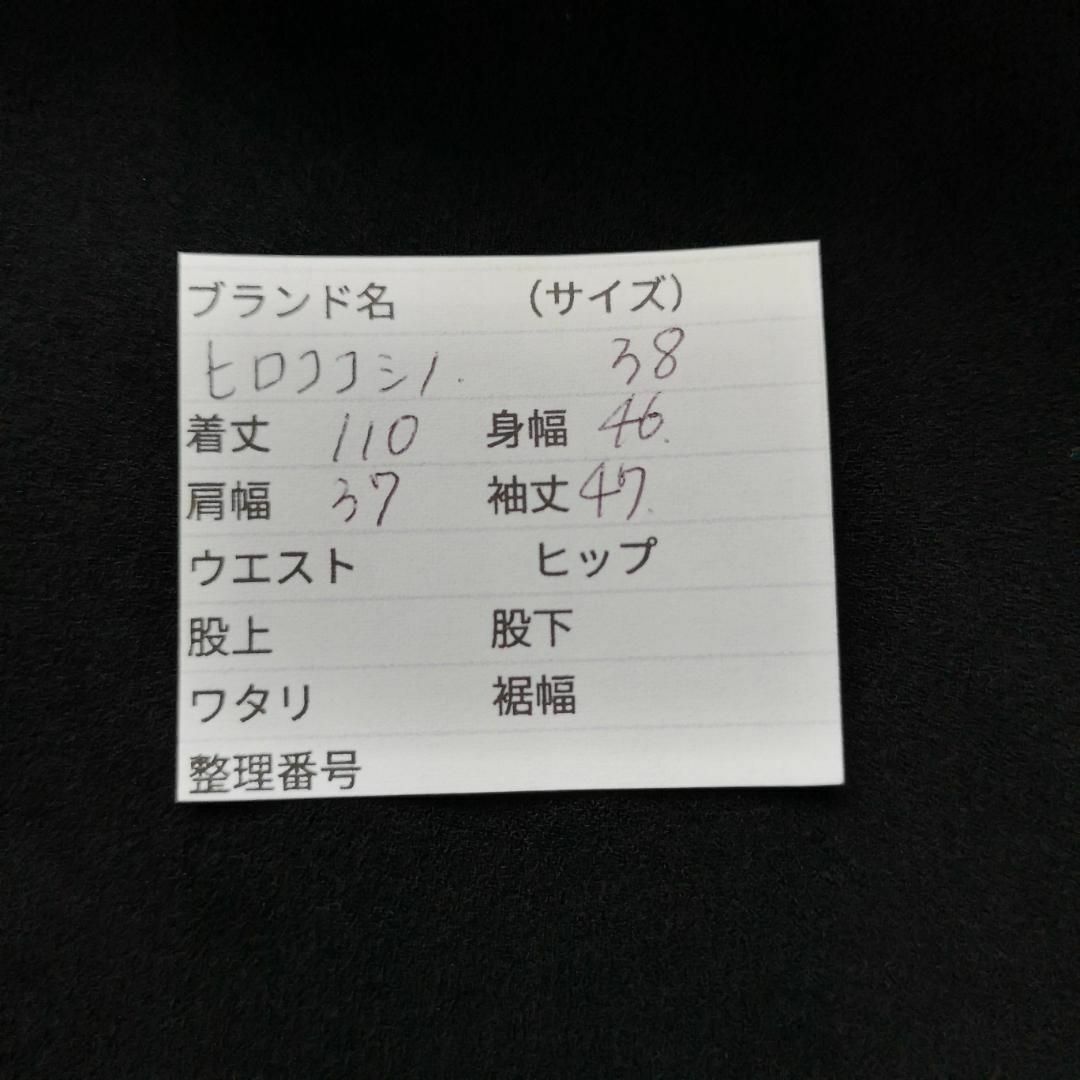 ブランド名 (サイズ)
ヒロココシノ. 38
着丈 110 身幅 46.
肩幅 37 袖丈 47.
ウエスト ヒップ
股上 股下
ワタリ 裾幅
整理番号